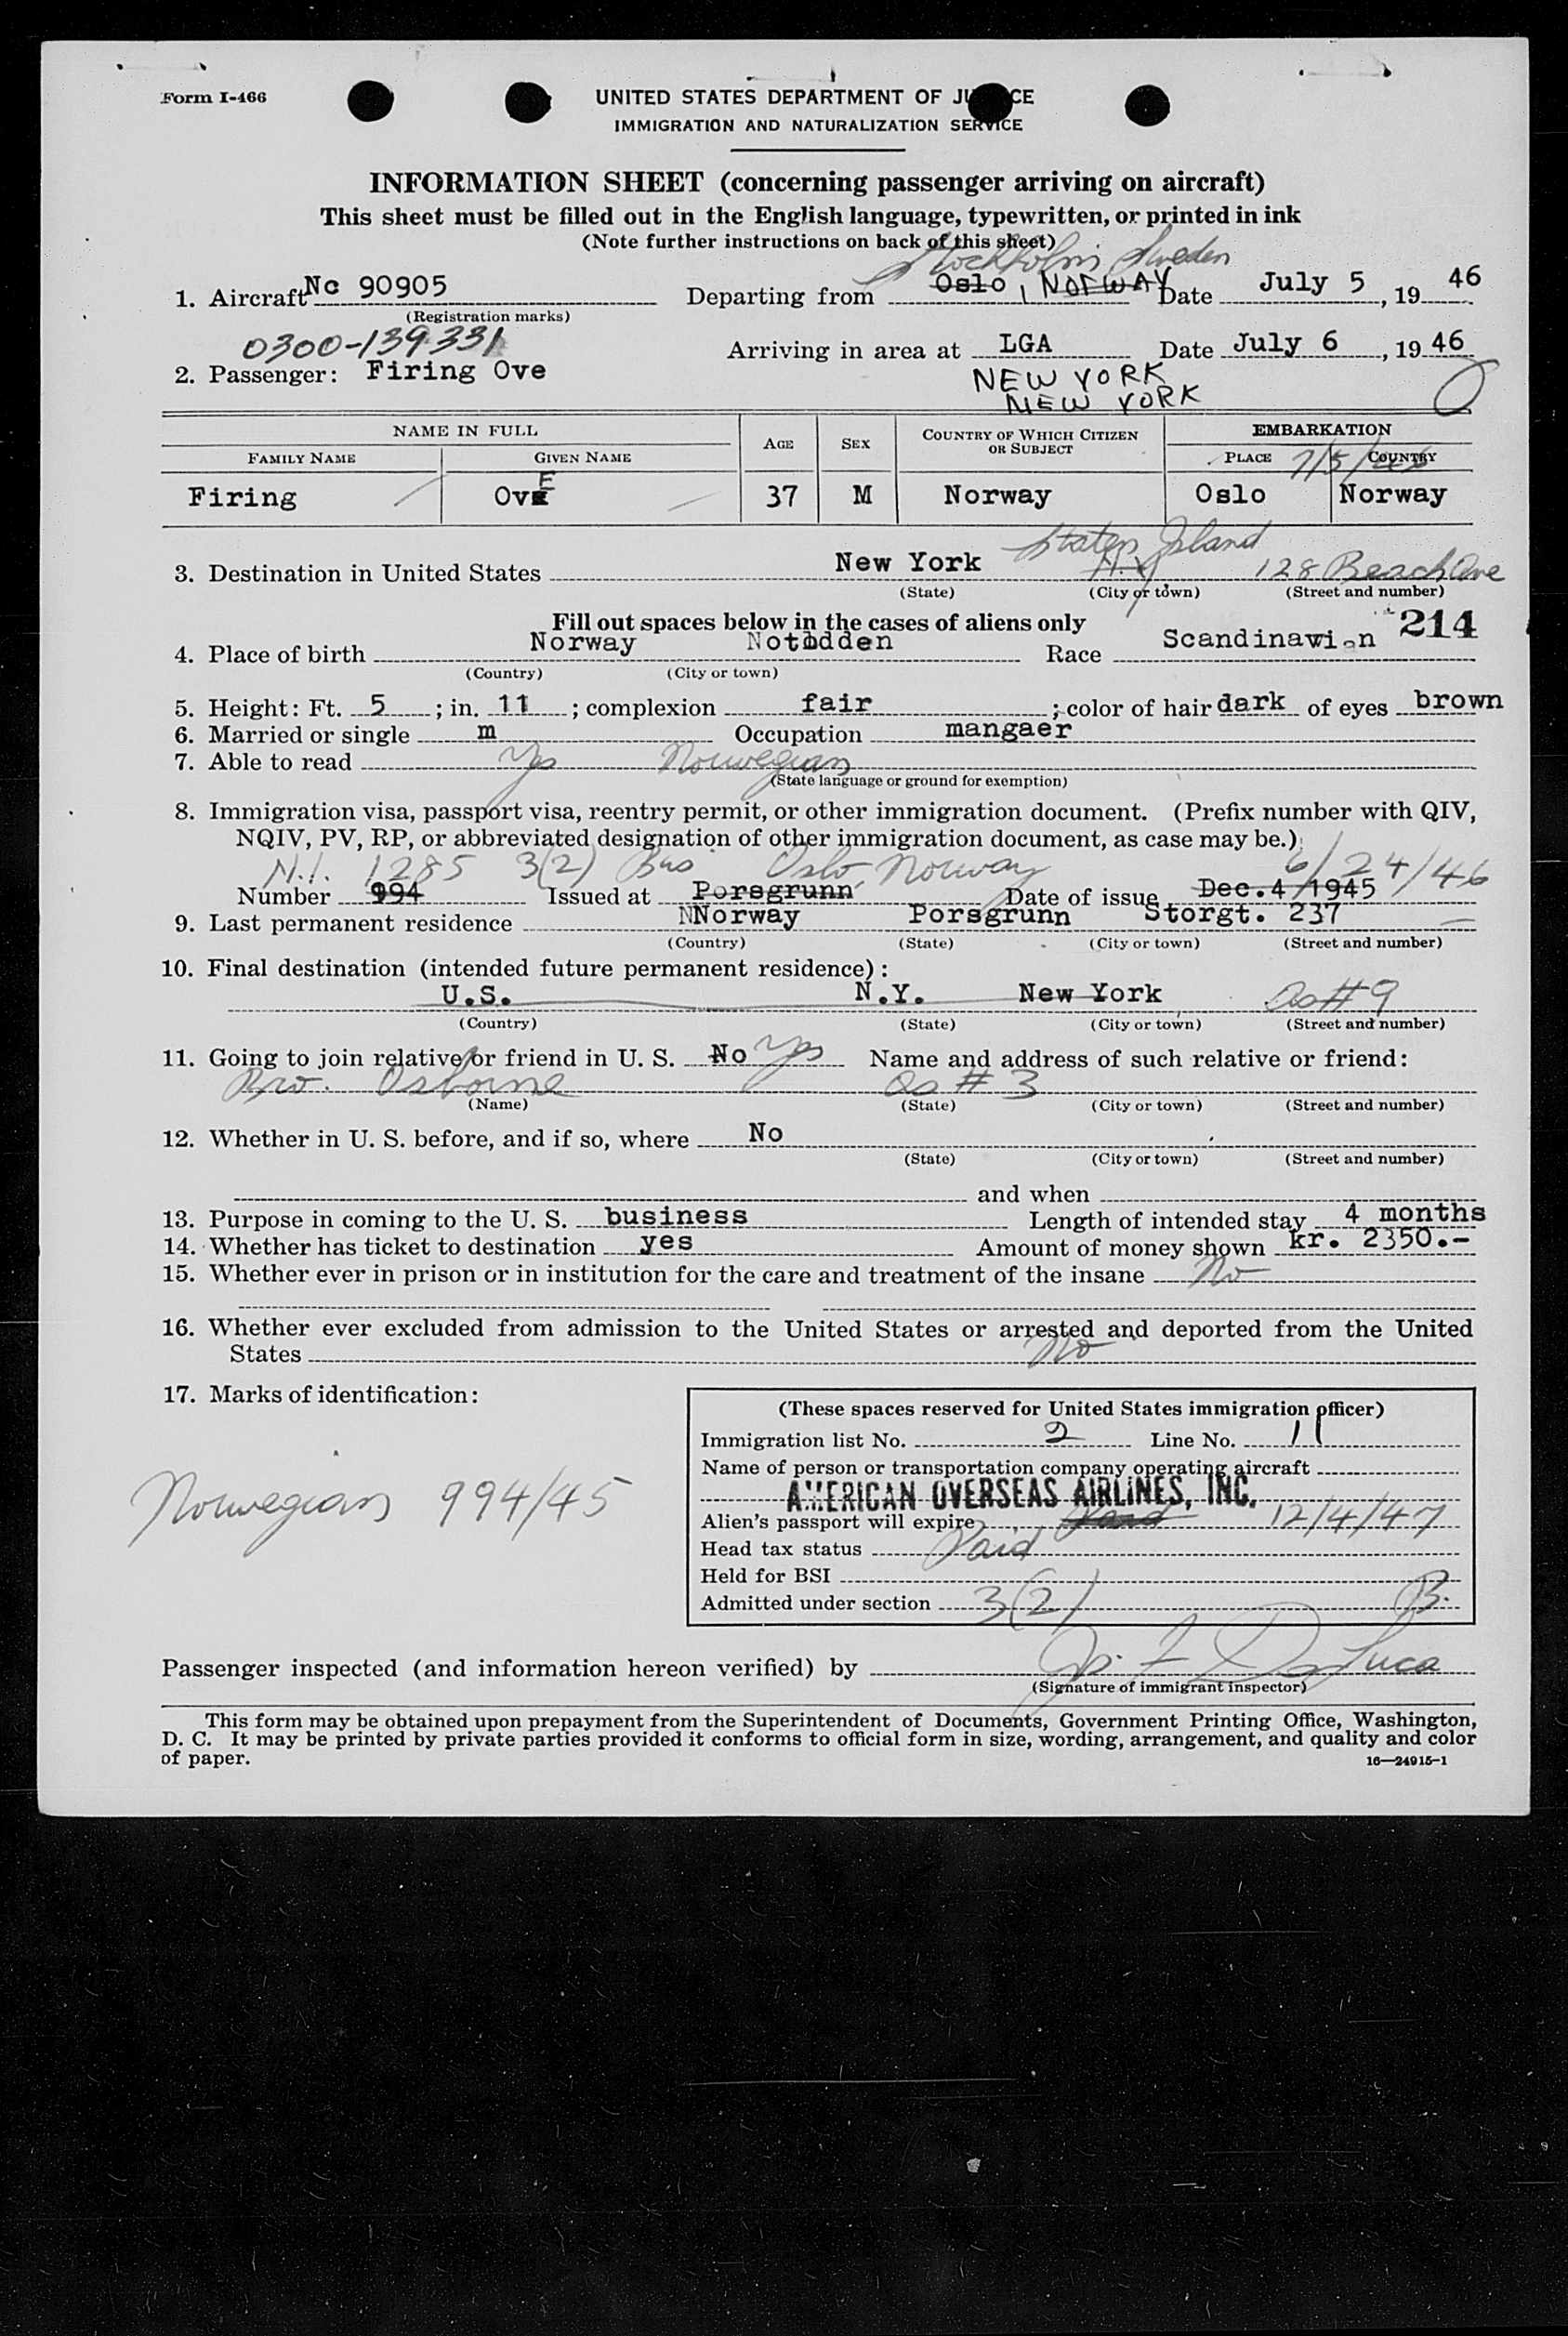 Form I-466
UNITED STATES DEPARTMENT OF JUSTICE
IMMIGRATION AND NATURALIZATION SERVICE
INFORMATION SHEET (concerning passenger arriving on aircraft)
This sheet must be filled out in the English language, typewritten, or printed in ink
(Note further instructions on back of this sheet)
Stockholm Sweden
1. Aircraft Nc 90905 Departing from Oslo, NORWAY Date July 5, 19 46
(Registration marks)
0300-139331 Arriving in area at LGA Date July 6, 19 46
2. Passenger: Firing Ove NEW YORK
NEW YORK
NAME IN FULL AGE SEX COUNTRY OF WHICH CITIZEN OR SUBJECT EMBARKATION
FAMILY NAME GIVEN NAME PLACE COUNTRY
7/5/46
Firing OvE 37 M Norway Oslo Norway
Staten Island
3. Destination in United States New York N.Y. 128 Beach Ave
(State) (City or town) (Street and number)
Fill out spaces below in the cases of aliens only 214
4. Place of birth Norway Notodden Race Scandinawian
(Country) (City or town)
5. Height: Ft. 5; in. 11; complexion fair; color of hair dark of eyes brown
6. Married or single m Occupation mangaer
7. Able to read Yes Norwegian
(State language or ground for exemption)
8. Immigration visa, passport visa, reentry permit, or other immigration document. (Prefix number with QIV,
NQIV, PV, RP, or abbreviated designation of other immigration document, as case may be.)
N.I. 1285 3(2) Bus Oslo, Norway 6/24/46
Number 994 Issued at Porsgrunn Date of issue Dec. 4 1945
9. Last permanent residence NNorway Porsgrunn Storgt. 237
(Country) (State) (City or town) (Street and number)
10. Final destination (intended future permanent residence):
U.S. N.Y. New York as #9
(Country) (State) (City or town) (Street and number)
11. Going to join relative or friend in U. S. No Yes Name and address of such relative or friend:
Bro. Osborne as # 3
(Name) (State) (City or town) (Street and number)
12. Whether in U. S. before, and if so, where No
(State) (City or town) (Street and number)
and when
13. Purpose in coming to the U. S. business Length of intended stay 4 months
14. Whether has ticket to destination yes Amount of money shown kr. 2350.-
15. Whether ever in prison or in institution for the care and treatment of the insane No
16. Whether ever excluded from admission to the United States or arrested and deported from the United
States No
17. Marks of identification:
Norwegian 994/45
(These spaces reserved for United States immigration officer)
Immigration list No. 2 Line No. 11
Name of person or transportation company operating aircraft
AMERICAN OVERSEAS AIRLINES, INC.
Alien's passport will expire Paid 12/4/47
Head tax status Paid
Held for BSI
Admitted under section 3(2) B.
Passenger inspected (and information hereon verified) by DeLuca
(Signature of immigrant inspector)
This form may be obtained upon prepayment from the Superintendent of Documents, Government Printing Office, Washington,
D. C. It may be printed by private parties provided it conforms to official form in size, wording, arrangement, and quality and color
of paper.
16—24915-1